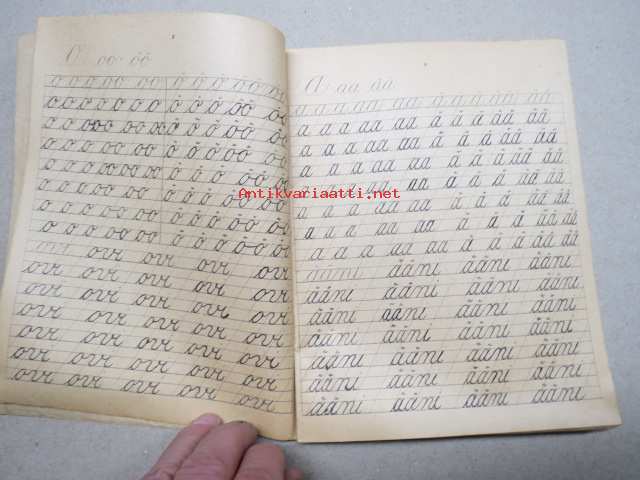 o oo öö
o o o o o oo oo ö ö ö ö öö öö
o o o o o oo oo ö ö ö öö öö
o o o oo o oo oo ö ö ö öö öö
o o o o o oo oo ö ö ö öö öö
o o o o oo oo oo ö ö ö öö öö
o o o o o oo oo ö ö ö öö öö
o o o o o oo oo ö ö ö öö öö
o o o o o oo oo ö ö ö öö öö
ovi ovi ovi ovi ovi
ovi ovi ovi ovi
ovi ovi ovi ovi ovi
ovi ovi ovi ovi
ovi ovi ovi ovi ovi
ovi ovi ovi ovi ovi
ovi ovi ovi ovi ovi
a aa ää
a a a aa aa ä ä ä ää ää
a a a aa aa ä ä ä ää ää
a a a aa aa ä ä ä ää ää
a a a aa aa ä ä ä ää ää
Antikvariaatti.net
a a a aa aa ä ä ä ää ää
a a a aa aa ä ä ä ää ää
a a a aa aa ä ä ä ää ää
ääni ääni ääni ääni
ääni ääni ääni ääni
ääni ääni ääni ääni
ääni ääni ääni ääni
ääni ääni ääni ääni
ääni ääni ääni ääni
ääni ääni ääni ääni